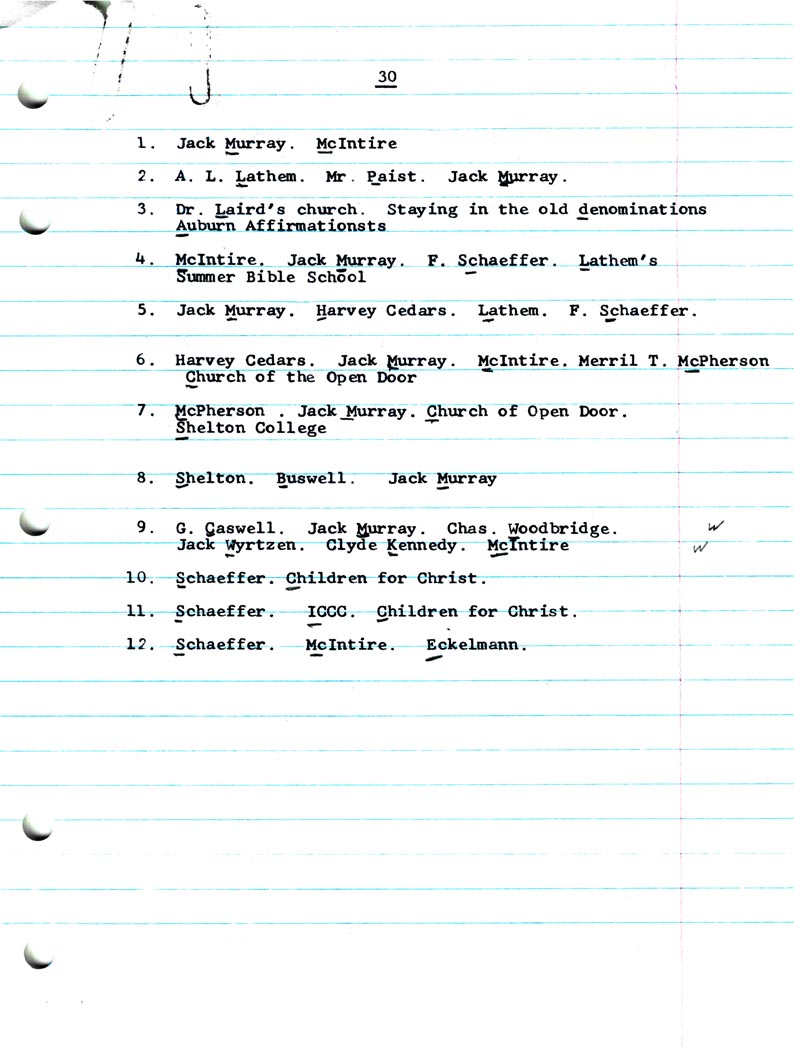 30
1. Jack Murray. McIntire
2. A. L. Lathem. Mr. Paist. Jack Murray.
3. Dr. Laird's church. Staying in the old denominations
Auburn Affirmationsts
4. McIntire. Jack Murray. F. Schaeffer. Lathem's
Summer Bible School
5. Jack Murray. Harvey Cedars. Lathem. F. Schaeffer.
6. Harvey Cedars. Jack Murray. McIntire. Merril T. McPherson
Church of the Open Door
7. McPherson . Jack Murray. Church of Open Door.
Shelton College
8. Shelton. Buswell. Jack Murray
9. G. Gaswell. Jack Murray. Chas. Woodbridge. W
Jack Wyrtzen. Clyde Kennedy. McIntire W
10. Schaeffer. Children for Christ.
11. Schaeffer. ICCC. Children for Christ.
12. Schaeffer. McIntire. Eckelmann.